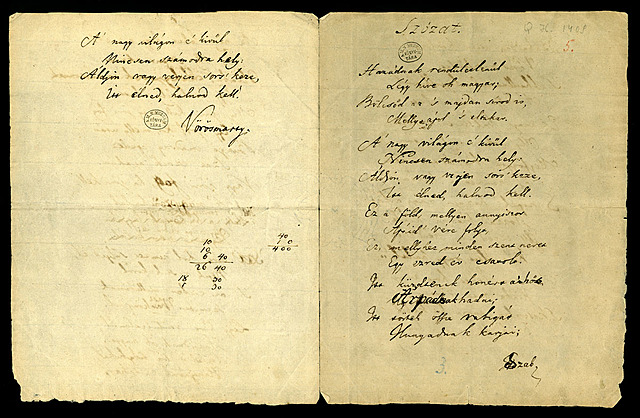 A' nagy világon é kivűl
Nincsen számodra hely:
Áldjon vagy verjen sors' keze,
Itt élned, halnod kell!
Vörösmarty.
10 40
10 10
6 40 400
26 40
18 30
1 30
Szózat.
Q. H. 1408
5.
Hazádnak rendületlenűl
Légy híve oh magyar;
Bölcsőd az 's majdan sírod is,
Melly ápol 's eltakar.
A' nagy világon é kivűl
Nincsen számodra hely:
Áldjon vagy verjen sors' keze,
Itt élned, halnod kell.
Ez a' föld, mellyen annyiszor
Apáid' vére folyt;
Ez, mellyhez minden szent nevet
Egy ezred év csatolt.
Itt küzdtenek honért a' hős
Árpádnak hadai;
Itt törtek össze rabigát
Hunyadnak karjai;
Szab
3.